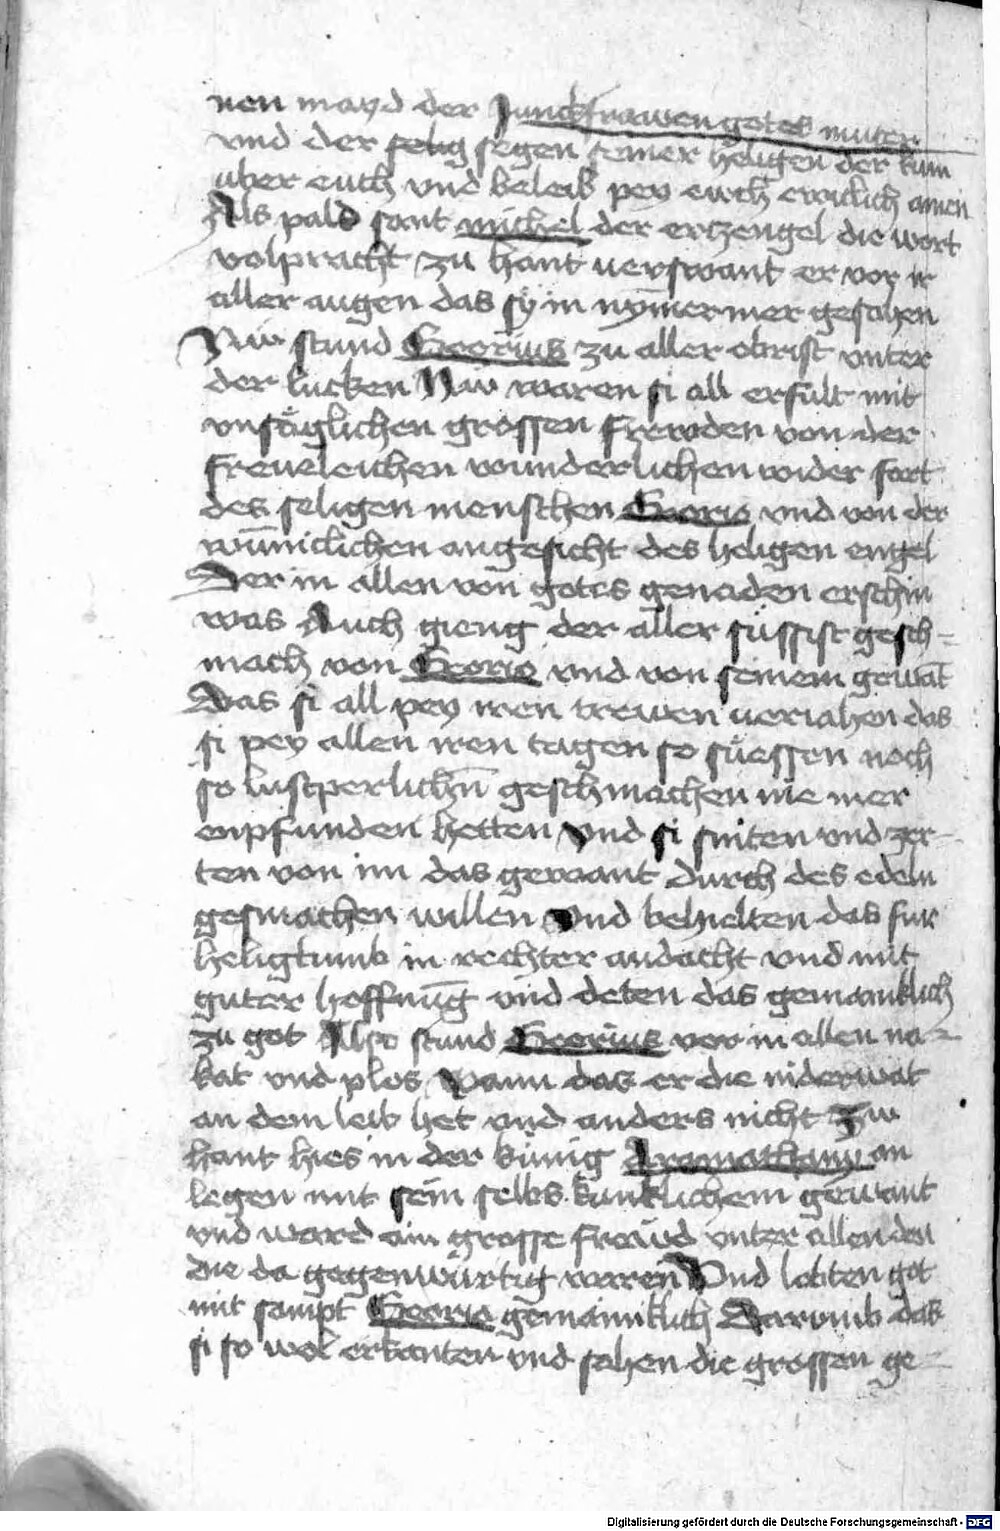 nen mayd der Junckfrawen gotes muter
vnd der selig segen seiner heligen der kum
uber euch vnd beleib pey ewch ewiclich amen
Als pald sant michel der ertzengel die wort
volpracht zu hant uerswant er vor ir
aller augen das sy in nymermer gesahen
Nw stund Georius zu aller obrist vnter
der lucken Nw waren si all erfult mit
vnsäglichen grossen frewden von der
freueleichen wunderlichen wider fart
des seligen menschen Georio vnd von der
wunniclichen angesicht des heligen engel
Der in allen von gotes genaden erschin
was Auch gieng der aller sussist gesch-
mach von Georio vnd von seinem gewāt
Das si all pey iren trewen ueriahen das
si pey allen iren tagen so süessen noch
so lustperlichn̄ geschmachen nie mer
enpfunden hetten Vnd si sniten vnd zer-
ten von im das gewant durch des edeln
gesmachen willen Vnd behielten das fur
heligtumb in rechter andacht vnd mit
guter hoffnūg vnd deten das gemainklich
zu got Also stund Georius vor in allen na-
kat vnd plos Wann das er die niderwat
an dem leib het vnd anders nicht Zw
hant hies in der künig an
legen mit sein selbs kunklichem gewant
vnd ward ain grosse frawd vnter allen den
die da gegenwürtig warren Vnd lobten got
mit sampt Georio gemainiklich Darumb das
si so wol erkanten vnd sahen die grossen ge-
Digitalisierung gefördert durch die Deutsche Forschungsgemeinschaft - DFG